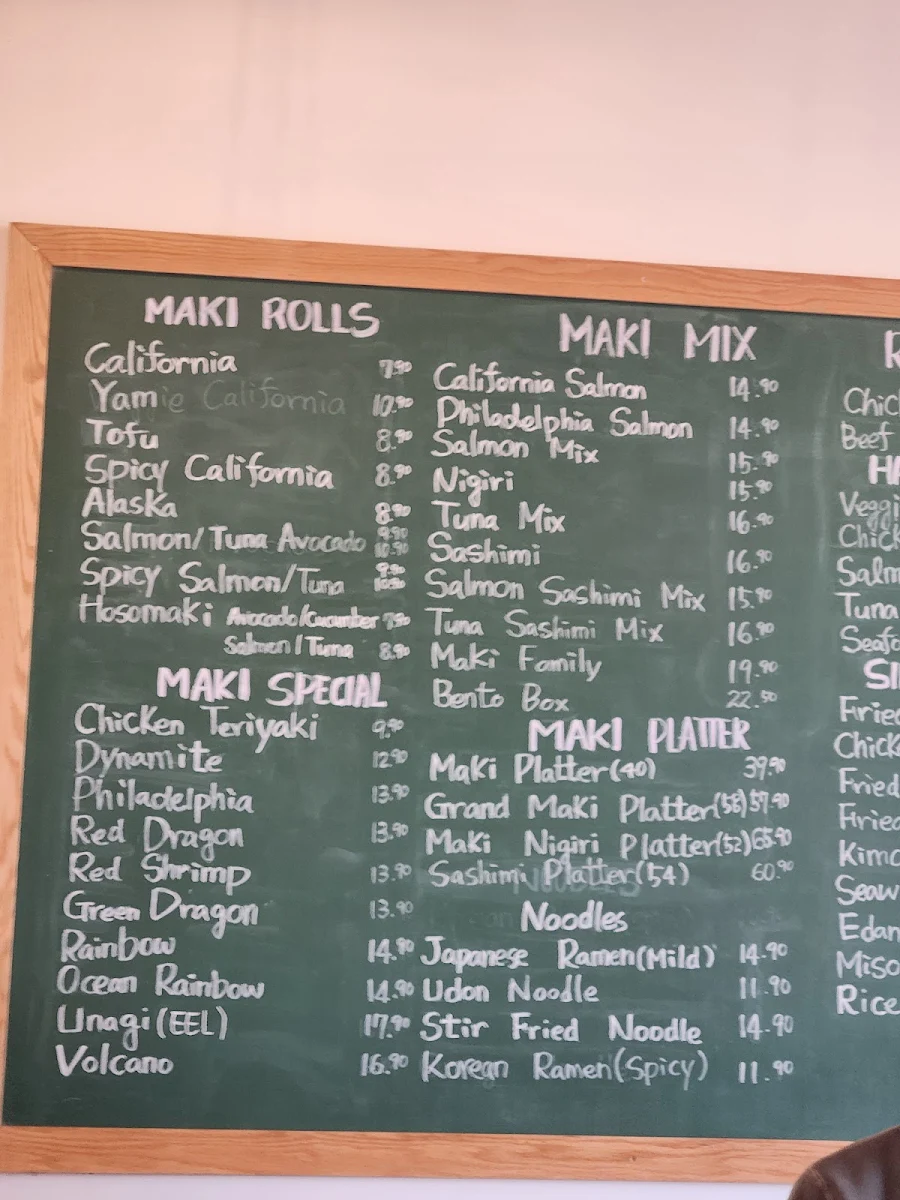 MAKI ROLLS
California 7.90
Yamie California 10.90
Tofu 8.90
Spicy California 8.90
Alaska 8.90
Salmon/Tuna Avocado 9.90 10.90
Spicy Salmon/Tuna 9.90
Hosomaki Avocado/Cucumber 7.90
Salmon/Tuna 8.90
MAKI SPECIAL
Chicken Teriyaki 9.90
Dynamite 12.90
Philadelphia 13.90
Red Dragon 13.90
Red Shrimp 13.90
Green Dragon 13.90
Rainbow 14.90
Ocean Rainbow 14.90
Unagi (EEL) 17.90
Volcano 16.90
MAKI MIX
California Salmon 14.90
Philadelphia Salmon 14.90
Salmon Mix 15.90
Nigiri 15.90
Tuna Mix 16.90
Sashimi 16.90
Salmon Sashimi Mix 15.90
Tuna Sashimi Mix 16.90
Maki Family 19.90
Bento Box 22.50
MAKI PLATTER
Maki Platter(40) 39.90
Grand Maki Platter(58) 57.90
Maki Nigiri Platter(52)
Sashimi Platter(54) 60.90
Noodles
Japanese Ramen(Mild) 14.90
Udon Noodle 11.90
Stir Fried Noodle 14.90
Korean Ramen(Spicy) 11.90
Beef
Tuna
Miso
Rice